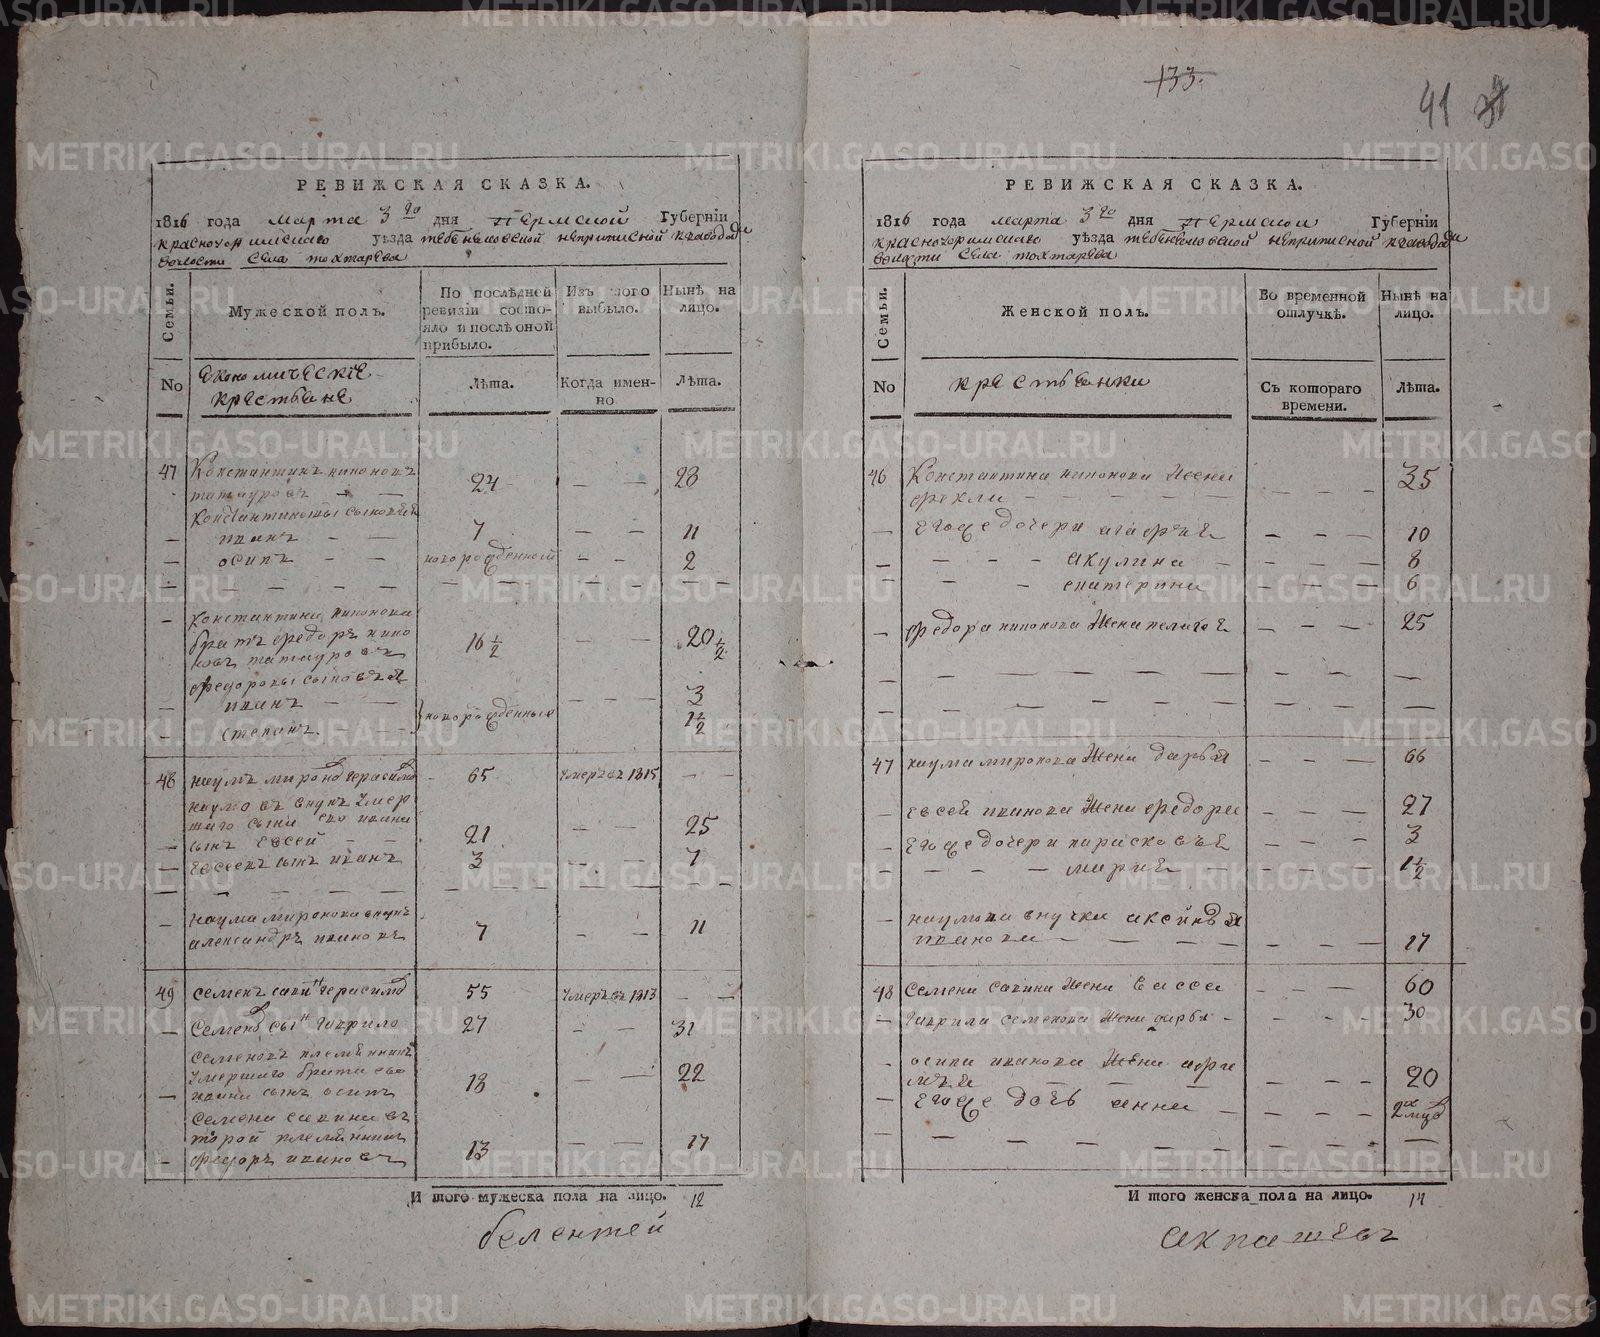 133.
41
РЕВИЖСКАЯ СКАЗКА.
1816 года марта 3го дня пермской Губернїи
красноуфимскаго уѣзда
волости села тохтарева
Семьи.
Мужеской полъ.
По послѣдней ревизїи состояло и послѣ оной прибыло.
Изъ того выбыло.
Нынѣ на лицо.
No
економическіе крестьяне
Лѣта.
Когда именно
Лѣта.
47 Константинъ татауровъ — — 24 — — 28
Константиновы сыновья
— иванъ — — 7 — — 11
— осипъ — — новорожденной — — 2
— — — — — — — — —
— Константина
братъ федоръ 16 1/2 — — 20 1/2
татауровъ
федоровы сыновья
— иванъ — — — — — 3
— степанъ новорожденные 1 1/2
48 наумъ миронов герасимов — 65 умеръ въ 1815 — —
наумовъ внукъ умер
шаго сына ево ивана
— сынъ евсей — — 21 — — 25
— евсеевъ сынъ иванъ 3 — — 7
— — — — — — — — —
— наума миронова внукъ
александръ ивановъ 7 — — 11
49 семенъ савин герасимов 55 умеръ въ 1813 — —
— семенов сын гаврило 27 — — 31
семеновъ племянникъ
умершаго брата ево
— ивана сынъ осипъ 18 — — 22
семена савина въ
торой племянникъ
— федоръ ивановъ 13 — — 17
И того мужеска пола на лицо. 12
белентей
РЕВИЖСКАЯ СКАЗКА.
1816 года марта 3го дня пермской Губернїи
красноуфимскаго уѣзда
волости села тохтарева
Семьи.
Женской полъ.
Во временной отлучкѣ.
Нынѣ на лицо.
No
крестьянки
Съ котораго времени.
Лѣта.
46 Константина жена
фекла — — — — — — — 35
— егоже дочери агафья — — — 10
— — — акулина — — — — 8
— — — екатерина — — — 6
— федора жена пелагея — — — 25
— — — — — — — — —
— — — — — — — — —
47 наума миронова жена дарья — — — 66
— евсея иванова жена федора — — — 27
— егоже дочери парасковья — — — 3
— — — — марья — — — — 1 1/2
— наумова внучка аксинья
иванова — — — — — — — 17
48 семена савина жена васса — — — 60
— гаврила семенова жена дарья — — — — 30
— осипа иванова жена
— — — — — — 20
— егоже дочь анна — — — — 2х мцов
— — — — — — — — —
И того женска пола на лицо. 14
акпашевъ
METRIKI.GASO-URAL.RU